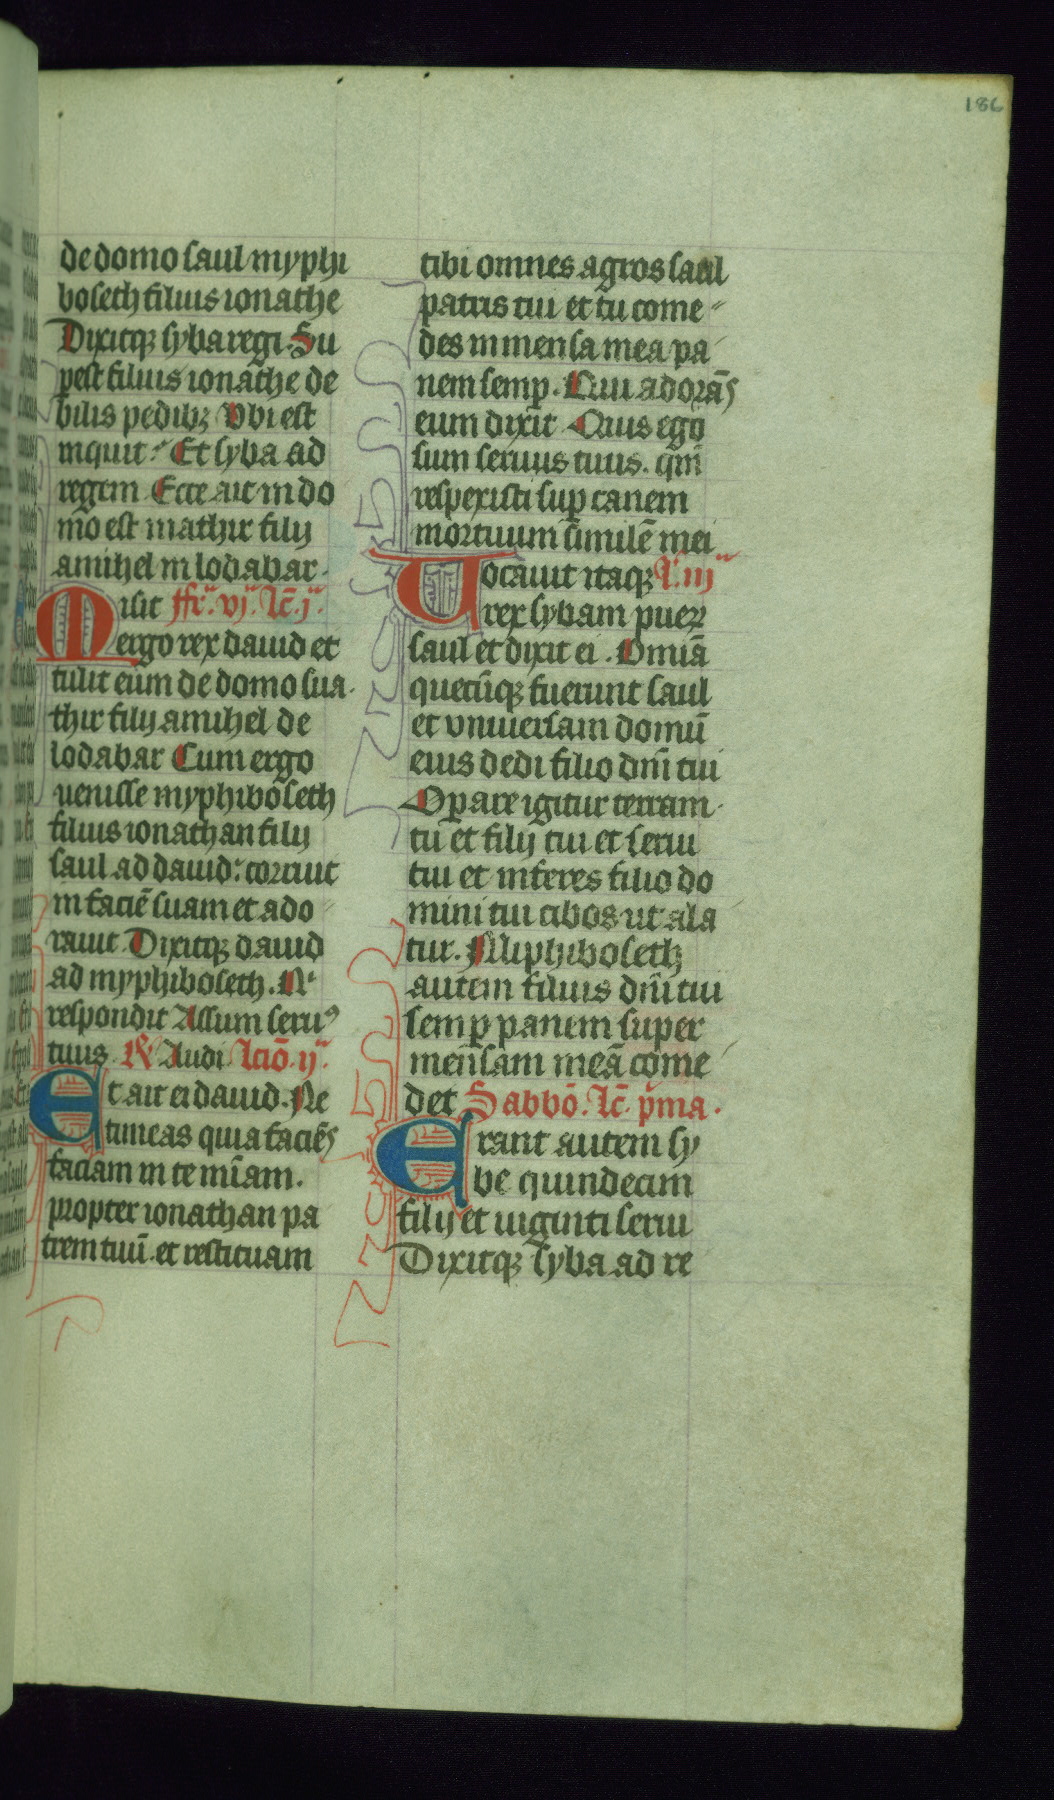 186
de domo saul myphi
boseth filius ionathe
Dixitqꝫ syba regi. Su
pest filius ionathe de
bilis pedibꝫ Vbi est
inquit: Et syba ad
regem Ecce ait in do
mo est mathir filij
amihel in lodabar.
Misit ffr̄. vj. lc̄. j.
ergo rex dauid et
tulit eum de domo sua.
thir filij amihel de
lodabar Cum ergo
uenisse myphiboseth
filius ionathan filij
saul ad dauid: corruit
in faciē suam et ado
rauit. Dixitqꝫ dauid
ad myphiboseth. Q̄i
respondit Assum seruꝰ
tuus. ℟ Audi lcio᷒. ij.
Et ait ei dauid. Ne
timeas quia faciēs
faciam in te mīam.
propter ionathan pa
trem tuū. et restituam
tibi omnes agros saul
patris tui et tu come
des in mensa mea pa
nem semꝑ. Qui adorās
eum dixit Quis ego
sum seruus tuus. qm̄
respexisti suꝑ canem
mortuum similē mei
Uocauit itaqꝫ l'. iij
rex sybam pueꝝ
saul et dixit ei. Omiā
quecūqꝫ fuerunt saul
et vniuersam domū
eius dedi filio dn̄i tui
Operare igitur terram
tu et filij tui et serui
tui et inferes filio do
mini tui cibos ut ala
tur. Miphiboseth
autem filius dn̄i tui
semꝑ panem super
mensam meā come
det Sabbō. lc̄. p̄ma.
Erant autem sy
be quindecim
filij et uiginti serui
Dixitqꝫ syba ad re